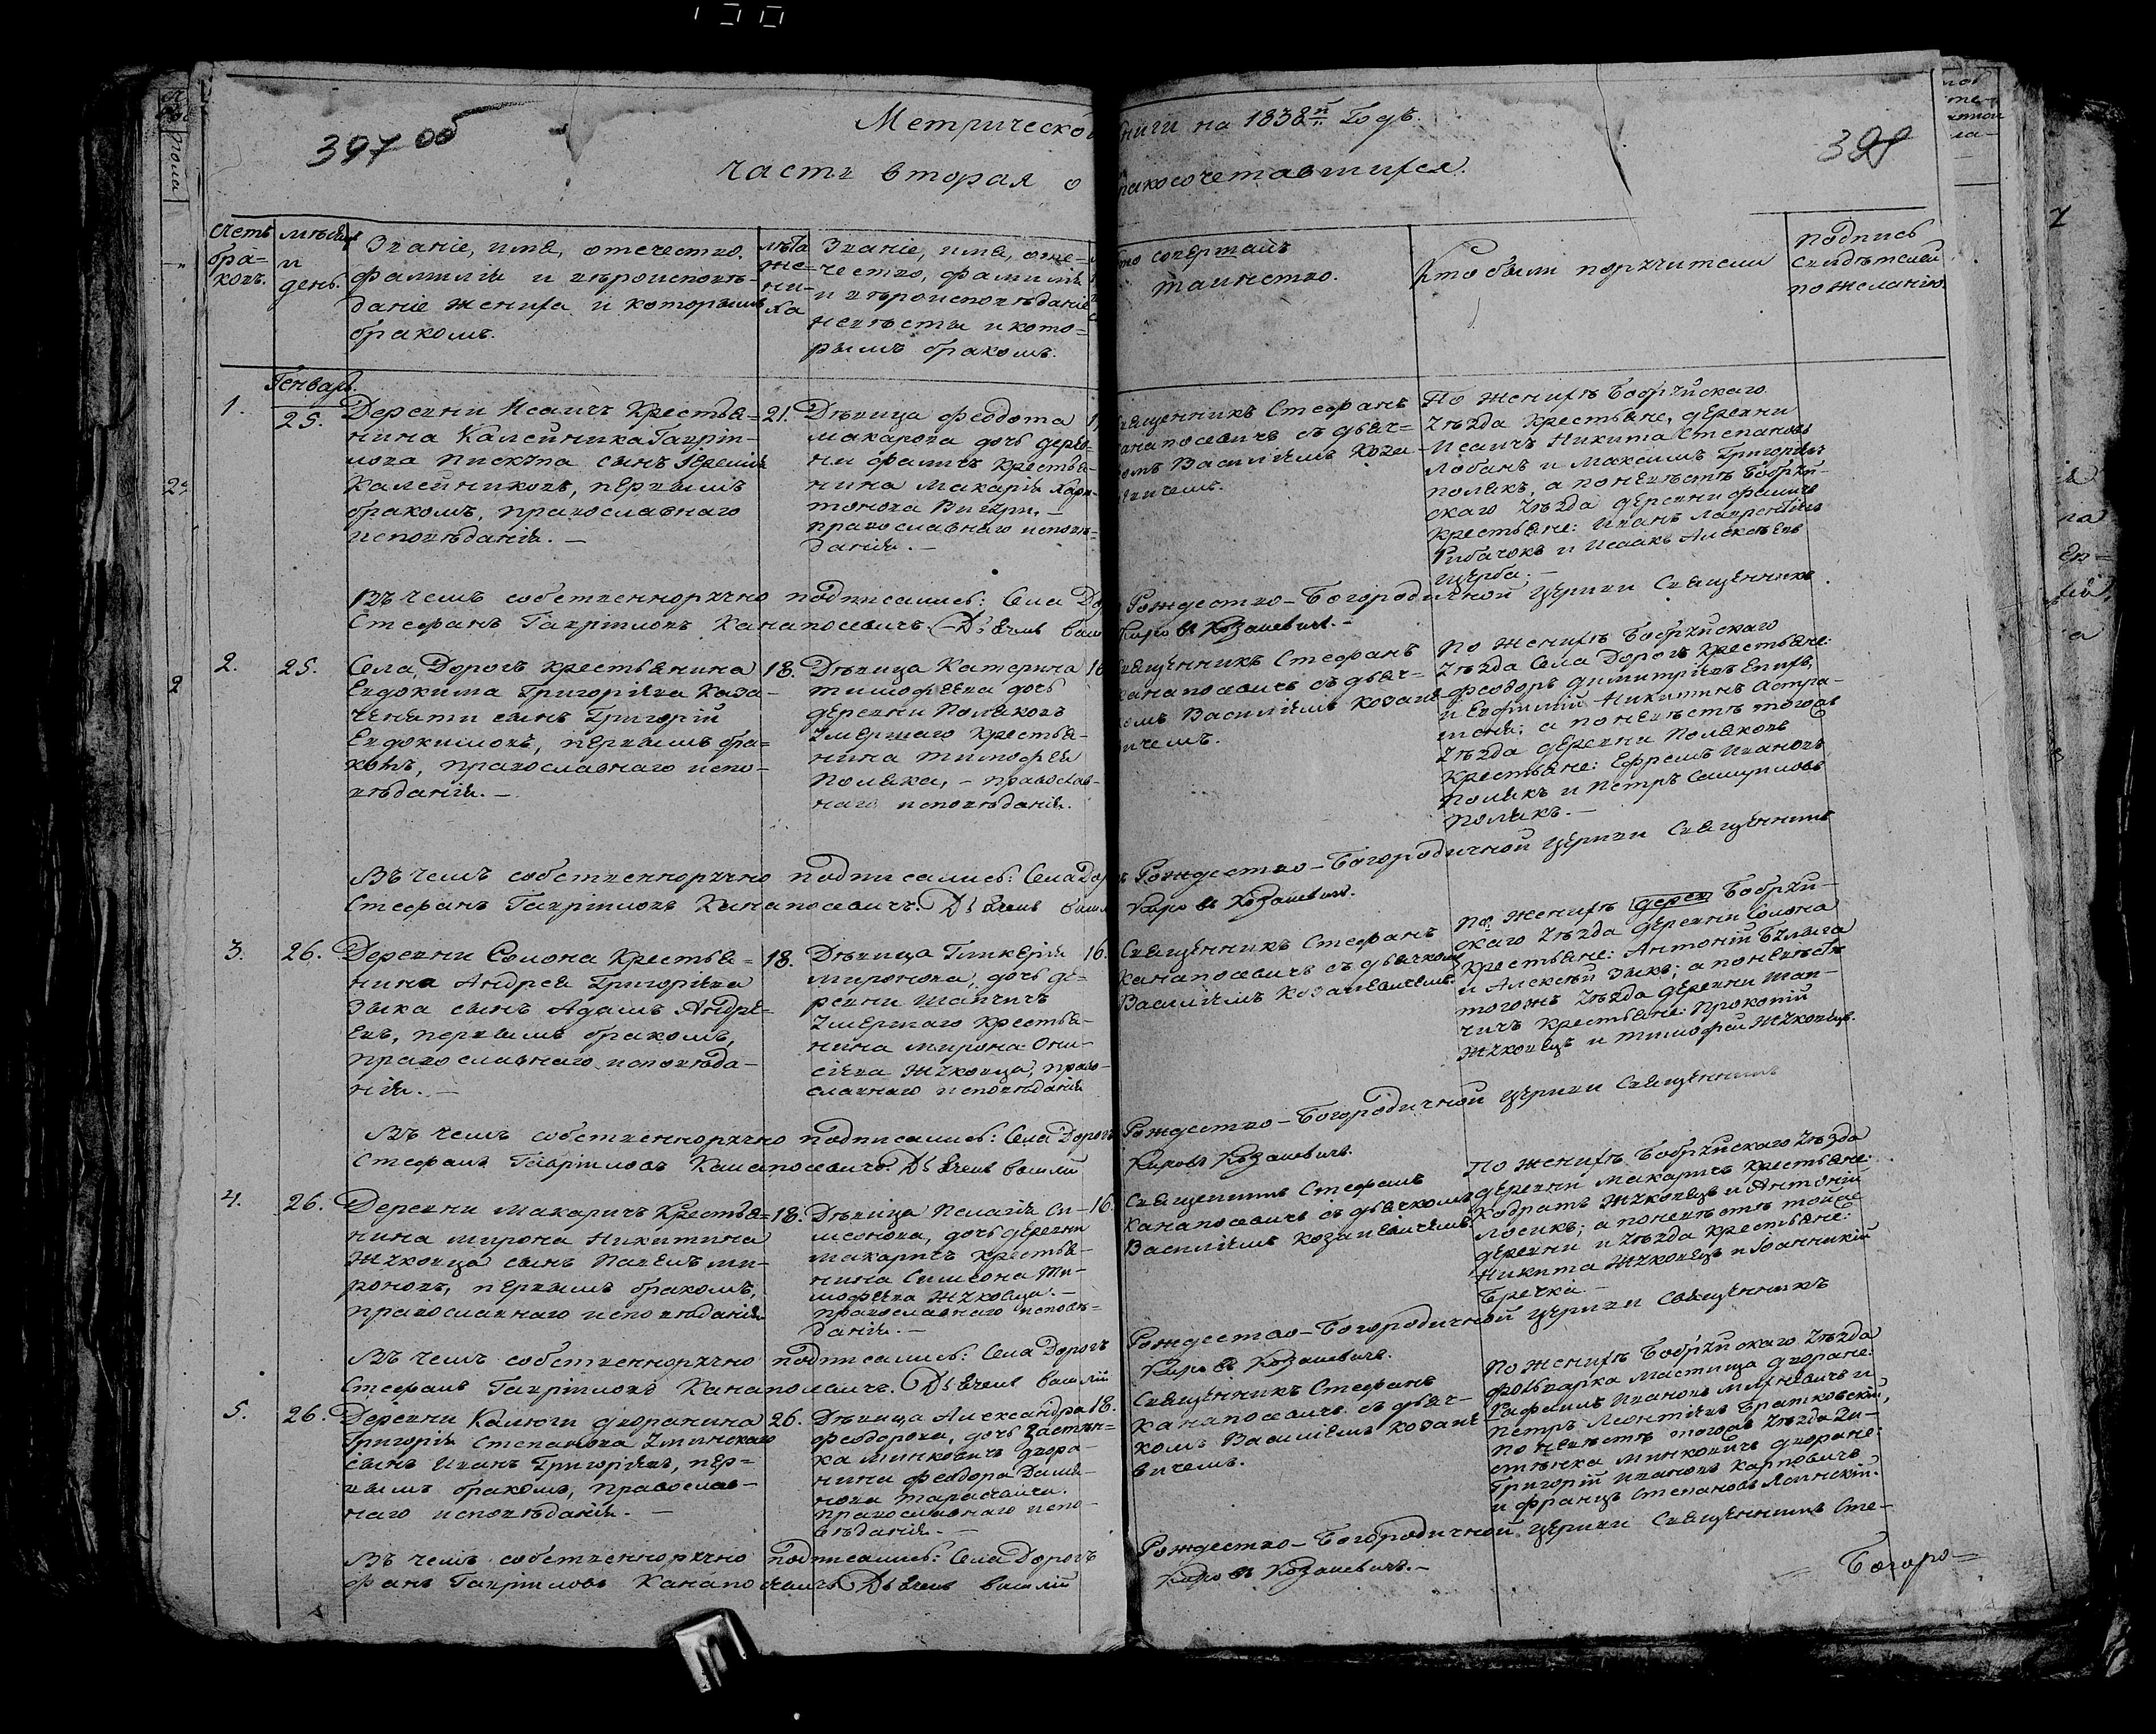 397 об
Метрической книги на 1838й Годъ.
398
часть вторая о бракосочетавшихся.
Счетъ бра=ковъ.
мѣсяцъ и день.
Званіе, имя, отечество, фамилія и вѣроисповѣ=даніе жениха и которымъ бракомъ.
лѣта же=ни=ха
Званіе, имя, оте=чество, фамилія и вѣроисповѣданіе невѣсты и кото=рымъ бракомъ.
Кто совершалъ таинство.
Кто были поручители
подпись свидѣтелей по желанію.
Генварь.
1.
25.
Деревни Исаичъ Крестья=
нина Калейника Гаврі-
лова сынъ Іеремія
Калейниковъ, первымъ
бракомъ, православнаго
исповѣданія. —
21.
Дѣвица Феодота
Макарова дочь дерев-
ни Фаличъ Крестья-
нина Макарія Хари-
тонова
православнаго исповѣ=
данія. —
Священникъ Стефанъ
Канапосевичъ съ дьяч=
комъ Василіемъ Коза-
кевичемъ.
По женихѣ Бобруйскаго
уѣзда Крестьяне, деревни
Исаичъ Никита Степановъ
Лобанъ и Максимъ Григорьевъ
Полякъ, а по невѣстѣ Бобруй-
скаго уѣзда деревни Фаличъ
Крестьяне: Иванъ Лаврентіевъ
Рибачокъ и Исаакъ Алексѣевъ
Щерба; —
Въ чемъ собственноручно подписались: Села Дорогъ Рождество-Богородичной церкви Священникъ
Стефанъ Гавріиловъ Канапосевичъ. Дьячекъ Василій Козакевичъ. —
2.
25.
Села Дорогъ крестьянина
Евдокима Григоріева Каза-
ченяти сынъ Григорій
Евдокимовъ, первымъ бра=
комъ, православнаго испо-
вѣданія. —
18.
Дѣвица Катерина
Тимофѣева дочь
деревни Поляковъ
умершаго крестья-
нина Тимофея
Поляка, — православ-
наго исповѣданія.
16
Священникъ Стефанъ
Канапосевичъ съ дьяч=
комъ Василіемъ Козаке-
вичемъ.
По женихѣ Бобруйскаго
уѣзда Села Дорогъ Крестьяне:
Феодоръ Димитріевъ Епифъ,
и Евфимій Никитинъ Астра-
шеня; а по невѣстѣ тогожъ
уѣзда деревни Поляковъ
Крестьяне: Ефремъ Ивановъ
Полякъ и Петръ Самуиловъ
Полякъ. —
Въ чемъ собственноручно подписались: Села Дорогъ Рождество-Богородичной церкви Священникъ
Стефанъ Гавріиловъ Канапосевичъ. Дьячекъ Василій Козакевичъ.
3.
26.
Деревни Солона Крестья=
нина Андрея Григоріева
Зыка сынъ Адамъ Андре=
евъ, первымъ бракомъ,
православнаго исповѣда-
нія. —
18.
Дѣвица Гликерія
Миронова, дочь де=
ревни Шапчичъ
умершаго крестья-
нина Мирона Они-
сіева Жуковца, право-
славнаго исповѣданія
16.
Священникъ Стефанъ
Канапосевичъ съ дьячкомъ
Василіемъ Козакевичемъ.
По женихѣ дерев Бобруй-
скаго уѣзда деревни Солона
Крестьяне: Антоній Булыга
и Алексѣй Зыкъ; а по невѣстѣ
тогожъ уѣзда деревни Шап-
чичъ Крестьяне: Прокопій
Жуковецъ и Тимофей Жуковецъ.
Въ чемъ собственноручно подписались: Села Дорогъ Рождество-Богородичной церкви Священникъ
Стефанъ Гавріиловъ Канапосевичъ. Дьячекъ Василій Козакевичъ.
4.
26.
Деревни Макаричъ Крестья=
нина Мирона Никитина
Жуковца сынъ Павелъ Ми-
роновъ, первымъ бракомъ,
православнаго исповѣданія
18.
Дѣвица Пелагія Си-
меонова, дочь деревни
Макаричъ крестья-
нина Симеона Ти-
мофѣева Жуковца. —
православнаго исповѣ=
данія. —
16.
Священникъ Стефанъ
Канапосевичъ съ дьячкомъ
Василіемъ Козакевичемъ.
По женихѣ Бобруйскаго уѣзда
деревни Макаричъ Крестьяне:
Кодратъ Жуковецъ и Антоній
Лосикъ; а по невѣстѣ тойже
деревни и уѣзда Крестьяне:
Никита Жуковецъ и Іоанникій
Бречка —
Въ чемъ собственноручно подписались: Села Дорогъ Рождество-Богородичной церкви Священникъ
Стефанъ Гавріиловъ Канапосевичъ. Дьячекъ Василій Козакевичъ.
5.
26.
Деревни Калюги дворянина
Григорія Степанова Зминскаго
сынъ Иванъ Григоріевъ, пер=
вымъ бракомъ, православ-
наго исповѣданія. —
26.
Дѣвица Александра
Феодорова, дочь застѣн=
ка Минковичъ дворя-
нина Феодора Дамя-
нова Тарасевича.
православнаго испо-
вѣданія. —
18.
Священникъ Стефанъ
Канапосевичъ съ дьяч-
комъ Василіемъ Козаке-
вичемъ.
По женихѣ Бобруйскаго уѣзда
фольварка Мастица дворяне:
Рафаилъ Ивановъ и
Петръ Леонтіевъ Братковскій,
по невѣстѣ тогожъ уѣзда за-
стѣнка Минковичъ дворяне:
Григорій Ивановъ Карповичъ
и Францъ Степановъ
Въ чемъ собственноручно подписались: Села Дорогъ Рождество-Богородичной церкви Священникъ Сте-
фанъ Гавріиловъ Канапосевичъ Дьячекъ Василій Козакевичъ. —
Богоро=